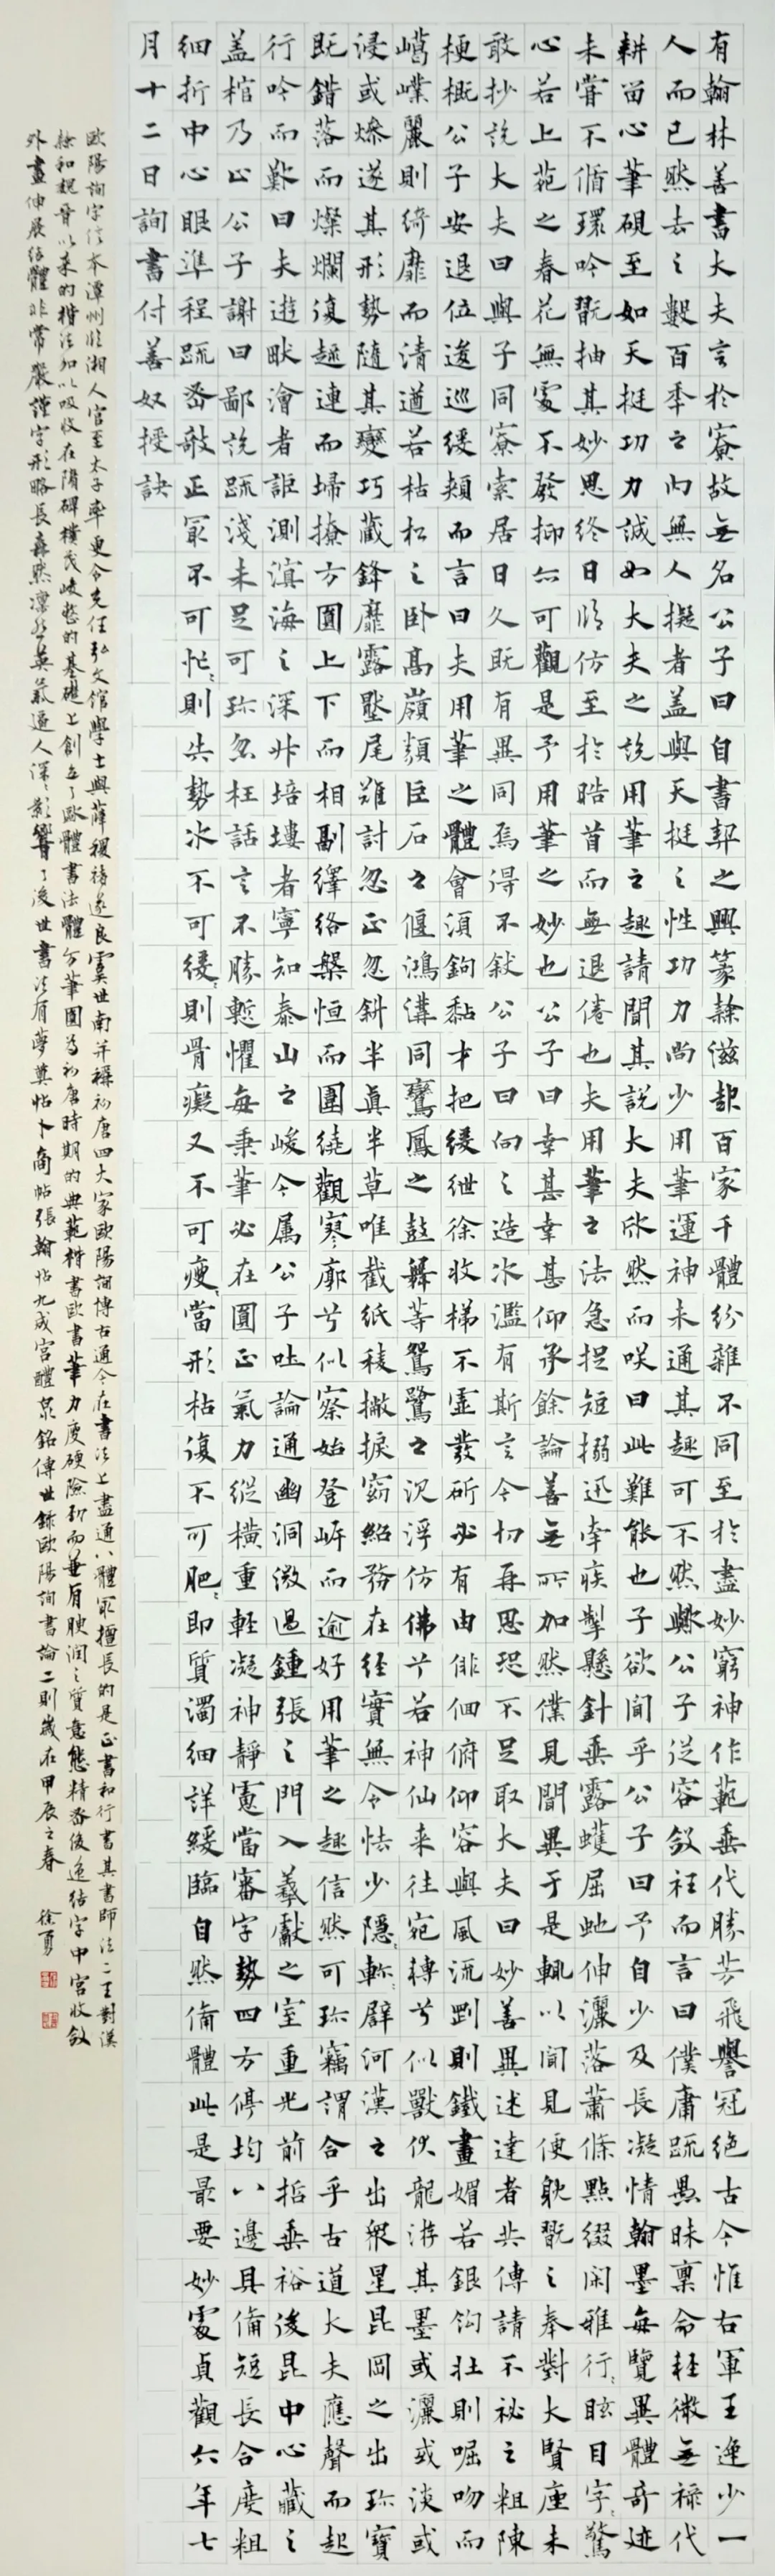 有翰林善書大夫言於寮故無名公子曰自書契之興篆隸滋起百家千體紛雜不同至於盡妙窮神作範垂代勝芳飛譽冠絕古今惟右軍王逸少一
人而已然去之數百年之內無人擬者蓋與天挺之性功力尚少用筆運神未通其趣可不然歟公子從容斂衽而言曰僕庸疏愚昧稟命輕微無祿代
耕留心筆硯至如天挺功力誠如大夫之說用筆之趣請聞其說大夫欣然而咲曰此難能也子欲聞乎公子曰予自少及長凝情翰墨每覽異體奇迹
未嘗不循環吟翫抽其妙思終日臨仿至於皓首而無退倦也夫用筆之法急捉短搦迅牽疾掣懸針垂露蠖屈虵伸灑落蕭條點綴閑雅行行眩目字字驚
心若上苑之春花無處不發抑亦可觀是予用筆之妙也公子曰幸甚幸甚仰承餘論善無所加然僕見聞異于是輒以聞見便躭翫之奉對大賢座未
敢抄說大夫曰與子同寮索居日久既有異同焉得不敘公子曰向之造次濫有斯言今切再思恐不足取大夫曰妙善異述達者共傳請不祕之粗陳
梗概公子安退位逡巡緩頰而言曰夫用筆之體會須鉤黏才把緩紲徐收梯不虛發斫必有由徘徊俯仰容與風流剛則鐵畫媚若銀鉤壯則啒吻而
嶱嶫麗則綺靡而清遒若枯松之臥高嶺類巨石之偃鴻溝同鸞鳳之鼓舞等鴛鷺之沉浮仿佛兮若神仙來往宛轉兮似獸伏龍游其墨或灑或淡或
浸或燥遂其形勢隨其變巧藏鋒靡露壓尾難討忽正忽斜半真半草唯截紙稜撇捩窈紹務在經實無令怯少隱隱軫軫譬河漢之出眾星昆岡之出珎寶
既錯落而燦爛復趢連而埽撩方圓上下而相副繹絡槃恒而圍繞觀寥寥廓兮似察始登岸而逾好用筆之趣信然可珎竊謂合乎古道大夫應聲而起
行吟而歎曰夫遊畎澮者詎測滇海之深升培塿者寧知泰山之峻今属公子吐論通幽洞微過鍾張之門入羲獻之室重光前哲垂裕後昆中心藏之
蓋棺乃止公子謝曰鄙說疏淺未足可珎忽枉話言不勝慙懼每秉筆必在圓正氣力縱橫重輕凝神靜慮當審字勢四方停均八邊具備短長合度粗
細折中心眼準程疏密欹正冣不可忙忙則失勢次不可緩緩則骨癡又不可瘦瘦當形枯復不可肥肥即質濁細詳緩臨自然備體此是最要妙處貞觀六年七
月十二日詢書付善奴授訣
歐陽詢字信本潭州臨湘人官至太子率更令先任弘文館學士與薛稷褚遂良虞世南并稱初唐四大家歐陽詢博古通今在書法上盡通八體冣擅長的是正書和行書其書師法二王對漢
隸和魏晉以來的楷法加以吸收在隋碑樸茂峻整的基礎上創立了歐體書法體方筆圓為初唐時期的典範楷書歐書筆力瘦硬險勁而兼有腴潤之質意態精密俊逸結字中宮收斂
外畫伸展結體非常嚴謹字形略長森然凜然英氣逼人深深影響了後世書法有夢奠帖卜商帖張翰帖九成宮醴泉銘傳世錄歐陽詢書論二則歲在甲辰之春 徐勇